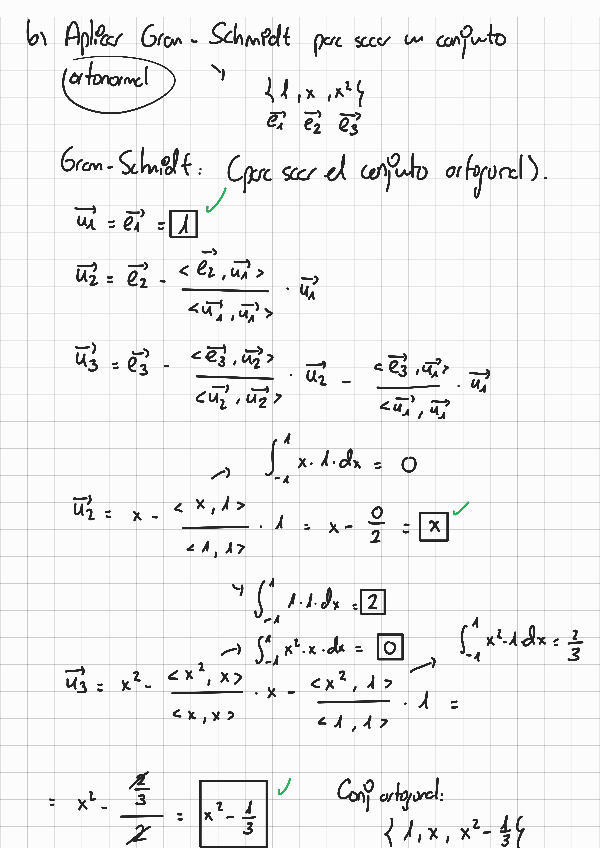 b) Aplicar Gran-Schmidt para sacar un conjunto
ortonormal → {1, x, x²}
e₁⃗ e₂⃗ e₃⃗
Gran-Schmidt: (para sacar el conjunto ortogonal).
u₁⃗ = e₁⃗ = 1 ✓
u₂⃗ = e₂⃗ - <e₂⃗, u₁⃗> / <u₁⃗, u₁⃗> · u₁⃗
u₃⃗ = e₃⃗ - <e₃⃗, u₂⃗> / <u₂⃗, u₂⃗> · u₂⃗ - <e₃⃗, u₁⃗> / <u₁⃗, u₁⃗> · u₁⃗
→ ∫₋₁¹ x·1·dx = 0
u₂⃗ = x - <x, 1> / <1, 1> · 1 = x - 0/2 = x ✓
↘ ∫₋₁¹ 1·1·dx = 2
→ ∫₋₁¹ x²·x·dx = 0 → ∫₋₁¹ x²·1dx = 2/3
u₃⃗ = x² - <x², x> / <x, x> · x - <x², 1> / <1, 1> · 1 =
= x² - (2/3) / 2 = x² - 1/3 ✓
Conj ortogonal:
{1, x, x² - 1/3}